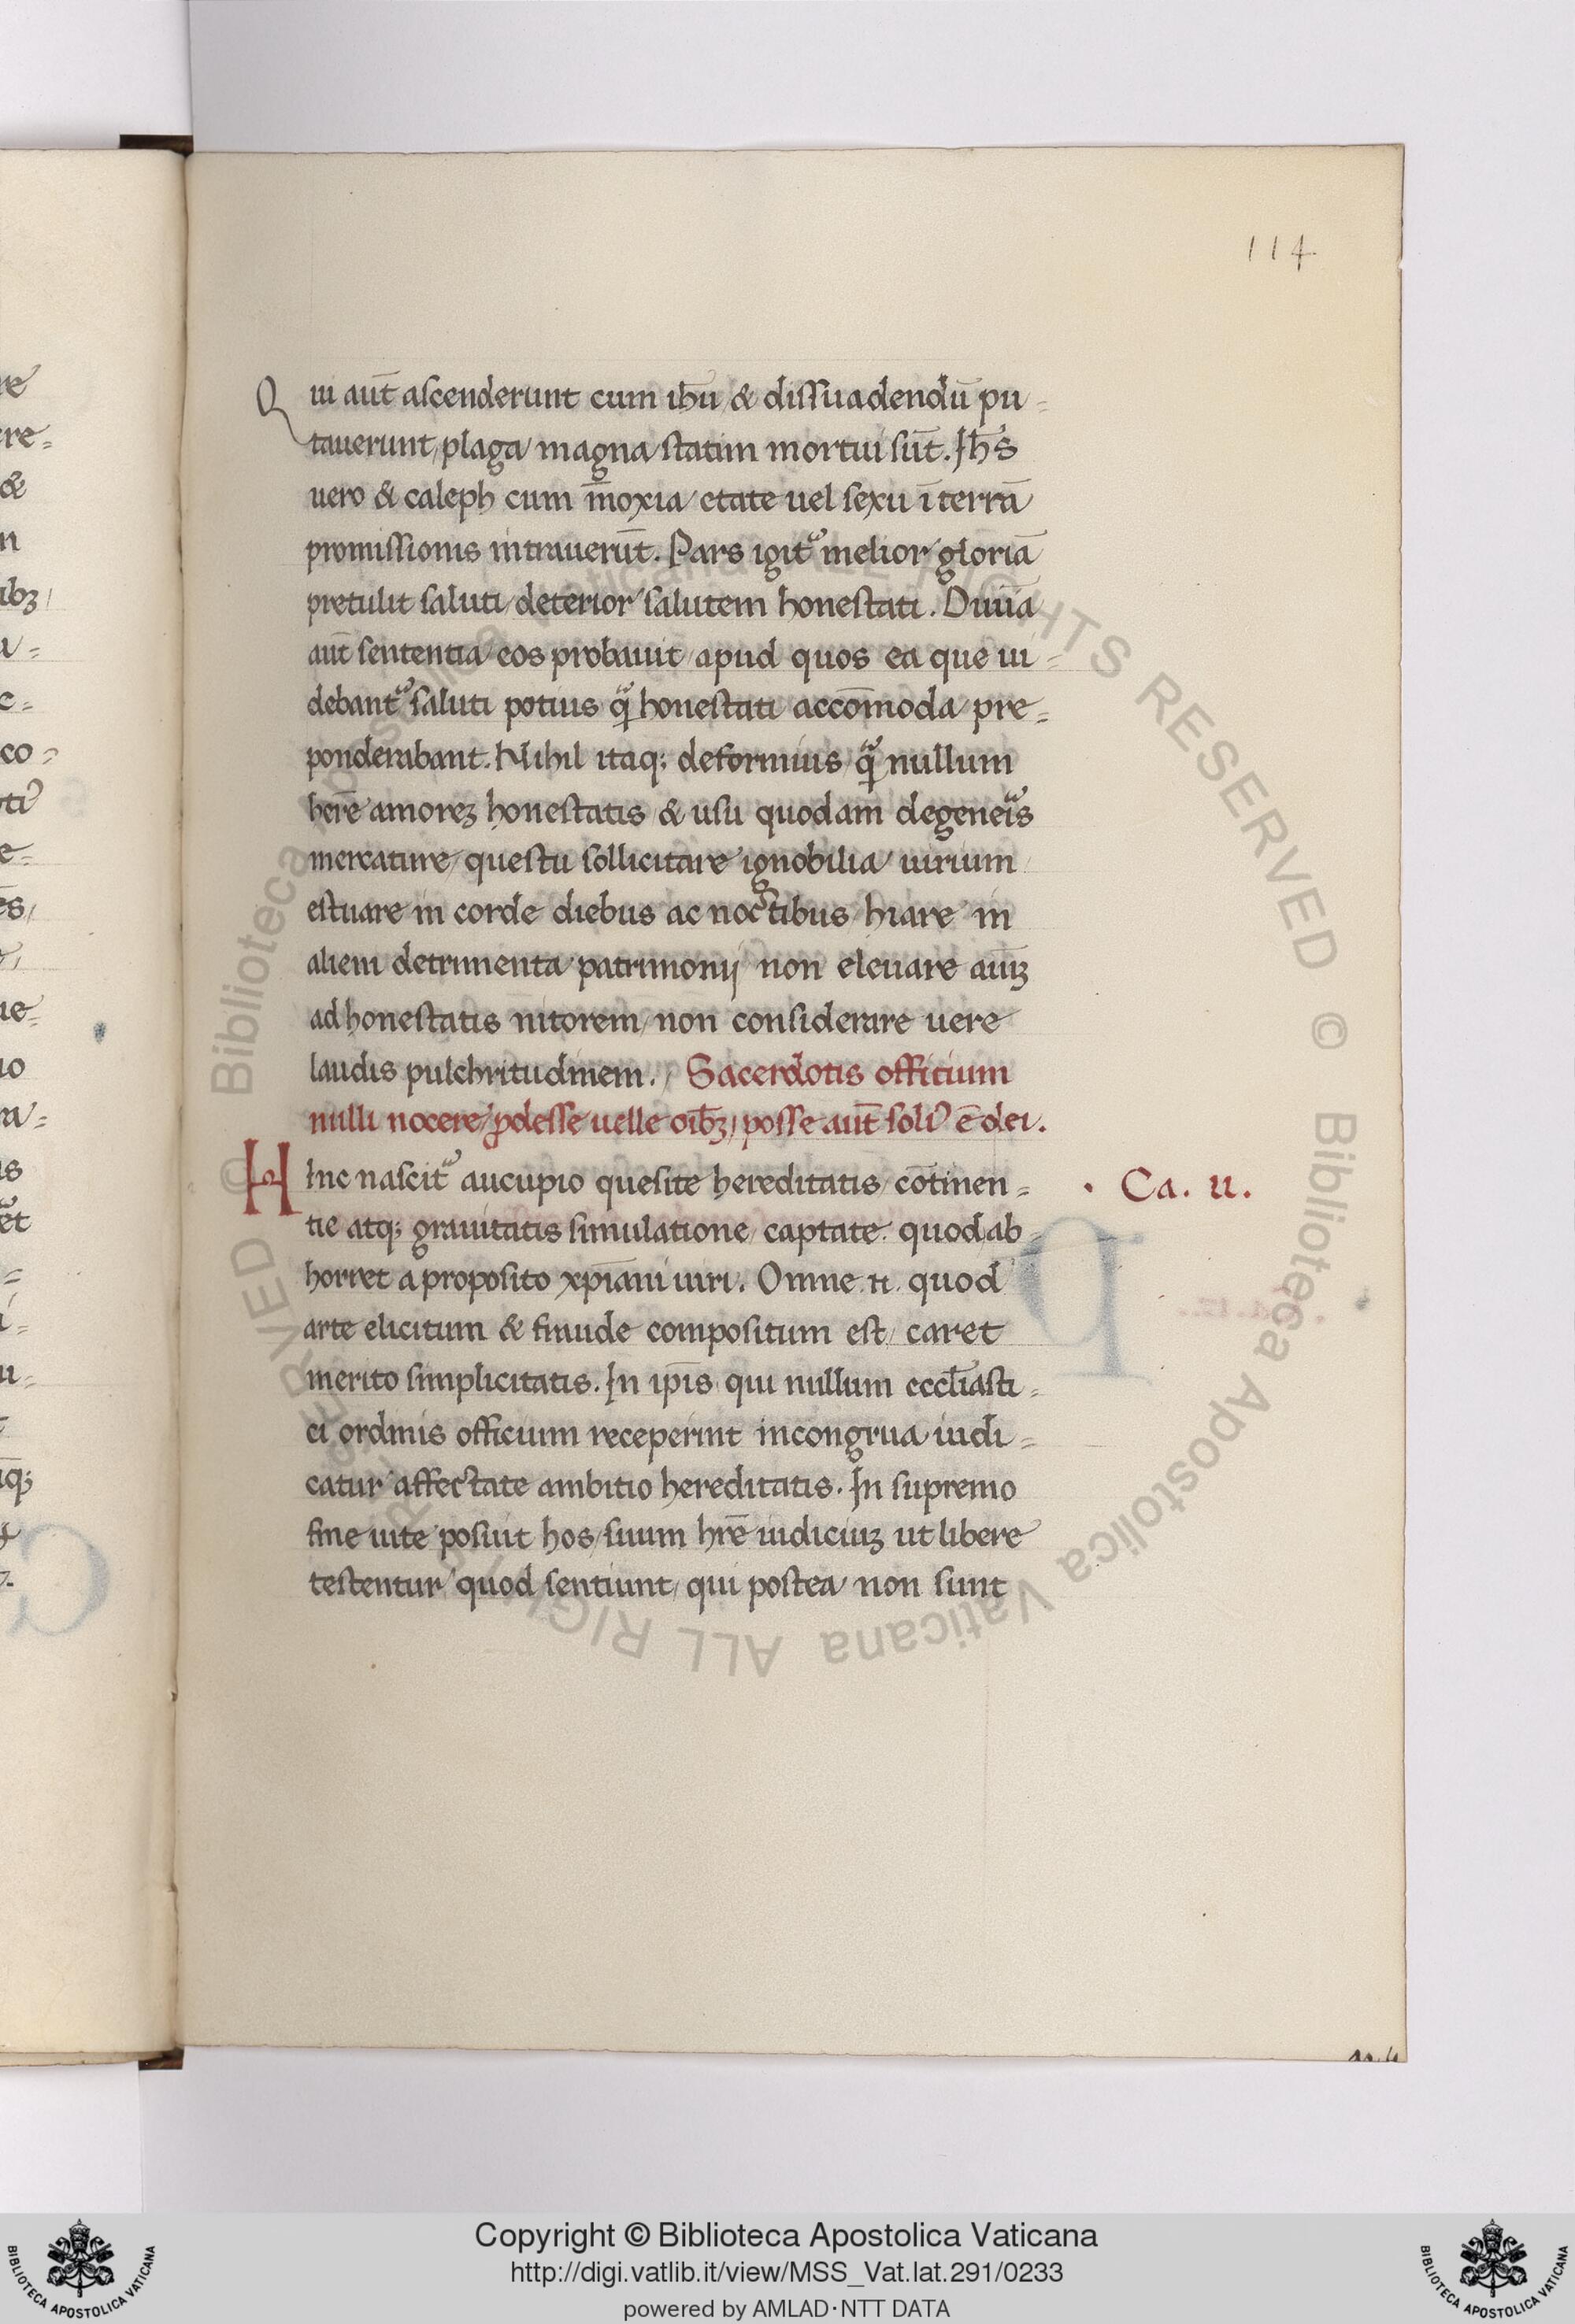 114
Qui aut̄ ascenderunt cum ih̄u / & dissuadendū pu=
tauerunt / plaga magna statim mortui sūt. Ih̄s
uero & caleph cum īnoxia / etate uel sexu ī terrā
promissionis intrauerūt. Pars igit᷑ melior / gloriā
pretulit saluti / deterior / salutem honestati. Diuīa
aut̄ sententia / eos probauit / apud quos ea que ui=
debant᷑ saluti potius q̄ honestati accōmoda / pre=
ponderabant. Nihil itaq; deformius / q̄ nullum
hēre amoreʒ honestatis / & usu quodam degeneīs
mercature / questu sollicitare / ignobilia uirium
estuare in corde diebus ac noctibus / hiare in
alieni detrimenta patrimonij non eleuare aīuʒ
ad honestatis nitorem / non considerare uere
laudis pulchritudinem. / Sacerdotis officium
nulli nocere / ꝓdesse uelle oīb̄ʒ / posse aut̄ soli᷒ ē dei.
Hinc nascit᷑ aucupio quesite hereditatis / cōtinen=
tie atq; grauitatis simulatione / captate. quod ab=
horret a proposito xp̄iani uiri. Omne .n. quod
arte elicitum & fraude compositum est / caret
merito simplicitatis. In ip̄is qui nullum eccl̄iasti=
ci ordinis officium receperint incongrua iudi=
catur affectate ambitio hereditatis. In supremo
fine uite posiut hos / suum hr̄e iudiciuʒ ut libere
testentur / quod sentiunt / qui postea non sunt
· Ca. u.
Copyright © Biblioteca Apostolica Vaticana
http://digi.vatlib.it/view/MSS_Vat.lat.291/0233
powered by AMLAD·NTT DATA
BIBLIOTECA APOSTOLICA VATICANA
BIBLIOTECA APOSTOLICA VATICANA
© Biblioteca Apostolica Vaticana ALL RIGHTS RESERVED © Biblioteca Apostolica Vaticana ALL RIGHTS RESERVED